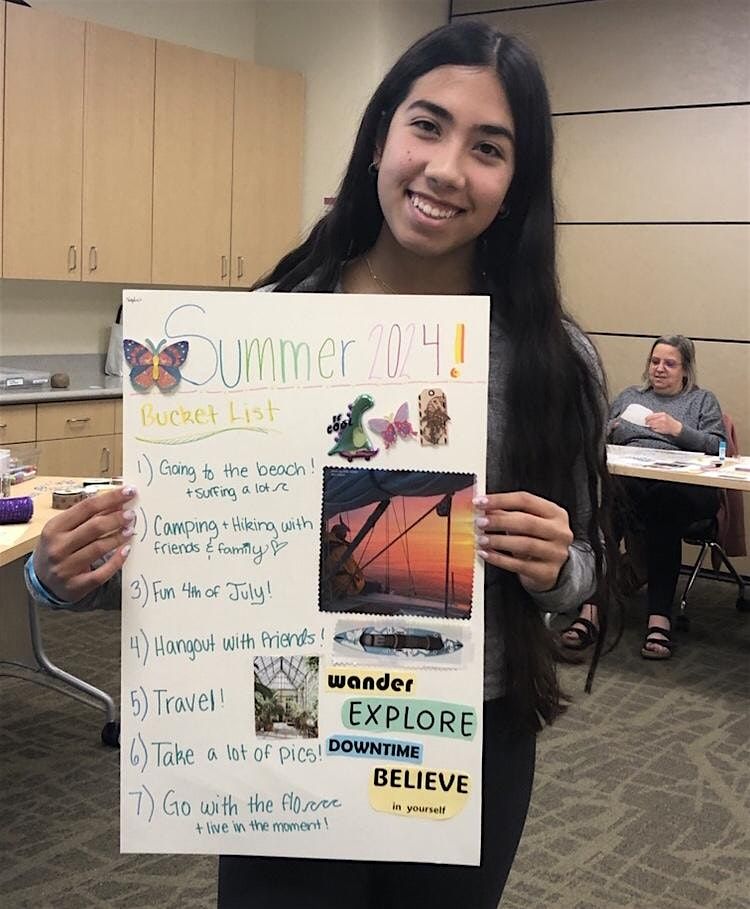 Summer 2024!
Bucket List
BE COOL
1) Going to the beach!
+ surfing a lot
) Camping + Hiking with
friends & family
3) Fun 4th of July!
4) Hangout with friends!
5) Travel!
wander
EXPLORE
6) Take a lot of pics!
DOWNTIME
BELIEVE
in yourself
7) Go with the flow
+ live in the moment!